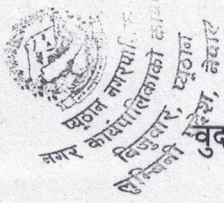 प्यूठान नगरपालिका
नगर कार्यपालिकाको कार्या
बिजुवार, प्यूठान
लुम्बिनी प्रदेश, नेपाल